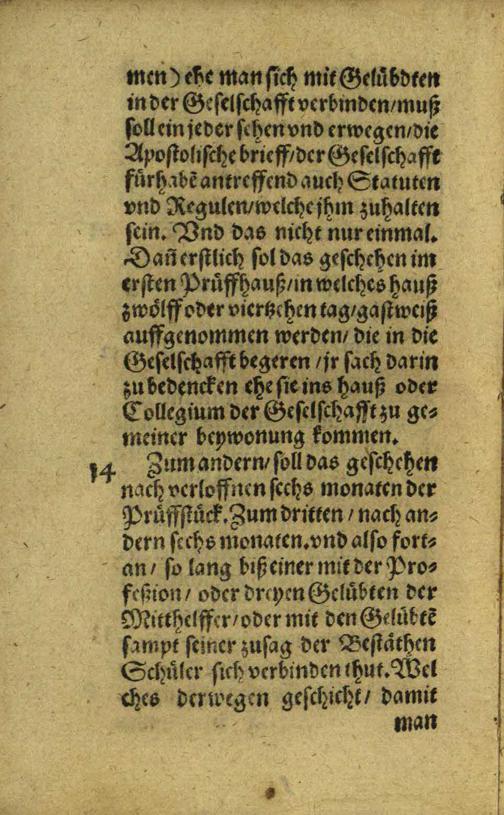 men) ehe man sich mit Gelübdten
in der Geselschafft verbinden/muß
soll ein jeder sehen vnd erwegen/die
Apostolische brieff/der Geselschafft
fürhabē antreffend auch Statuten
vnd Regulen/welche jhm zuhalten
sein. Vnd das nicht nur einmal.
Dañ erstlich sol das geschehen im
ersten Prüffhauß/in welches hauß
zwölff oder viertzehen tag/gastweiß
auffgenommen werden/ die in die
Geselschafft begeren /jr sach darin
zu bedencken ehe sie ins hauß oder
Collegium der Geselschafft zu ge⸗
meiner beywonung kommen.
14 Zum andern/ soll das geschehen
nach verloffnen sechs monaten der
Prüffstück. Zum dritten / nach an⸗
dern sechs monaten. vnd also fort⸗
an/ so lang biß einer mit der Pro⸗
feßion/ oder dreyen Gelübten der
Mitthelffer/oder mit den Gelübtē
sampt seiner zusag der Bestäthen
Schüler sich verbinden thut. Wel
ches derwegen geschicht/ damit
man